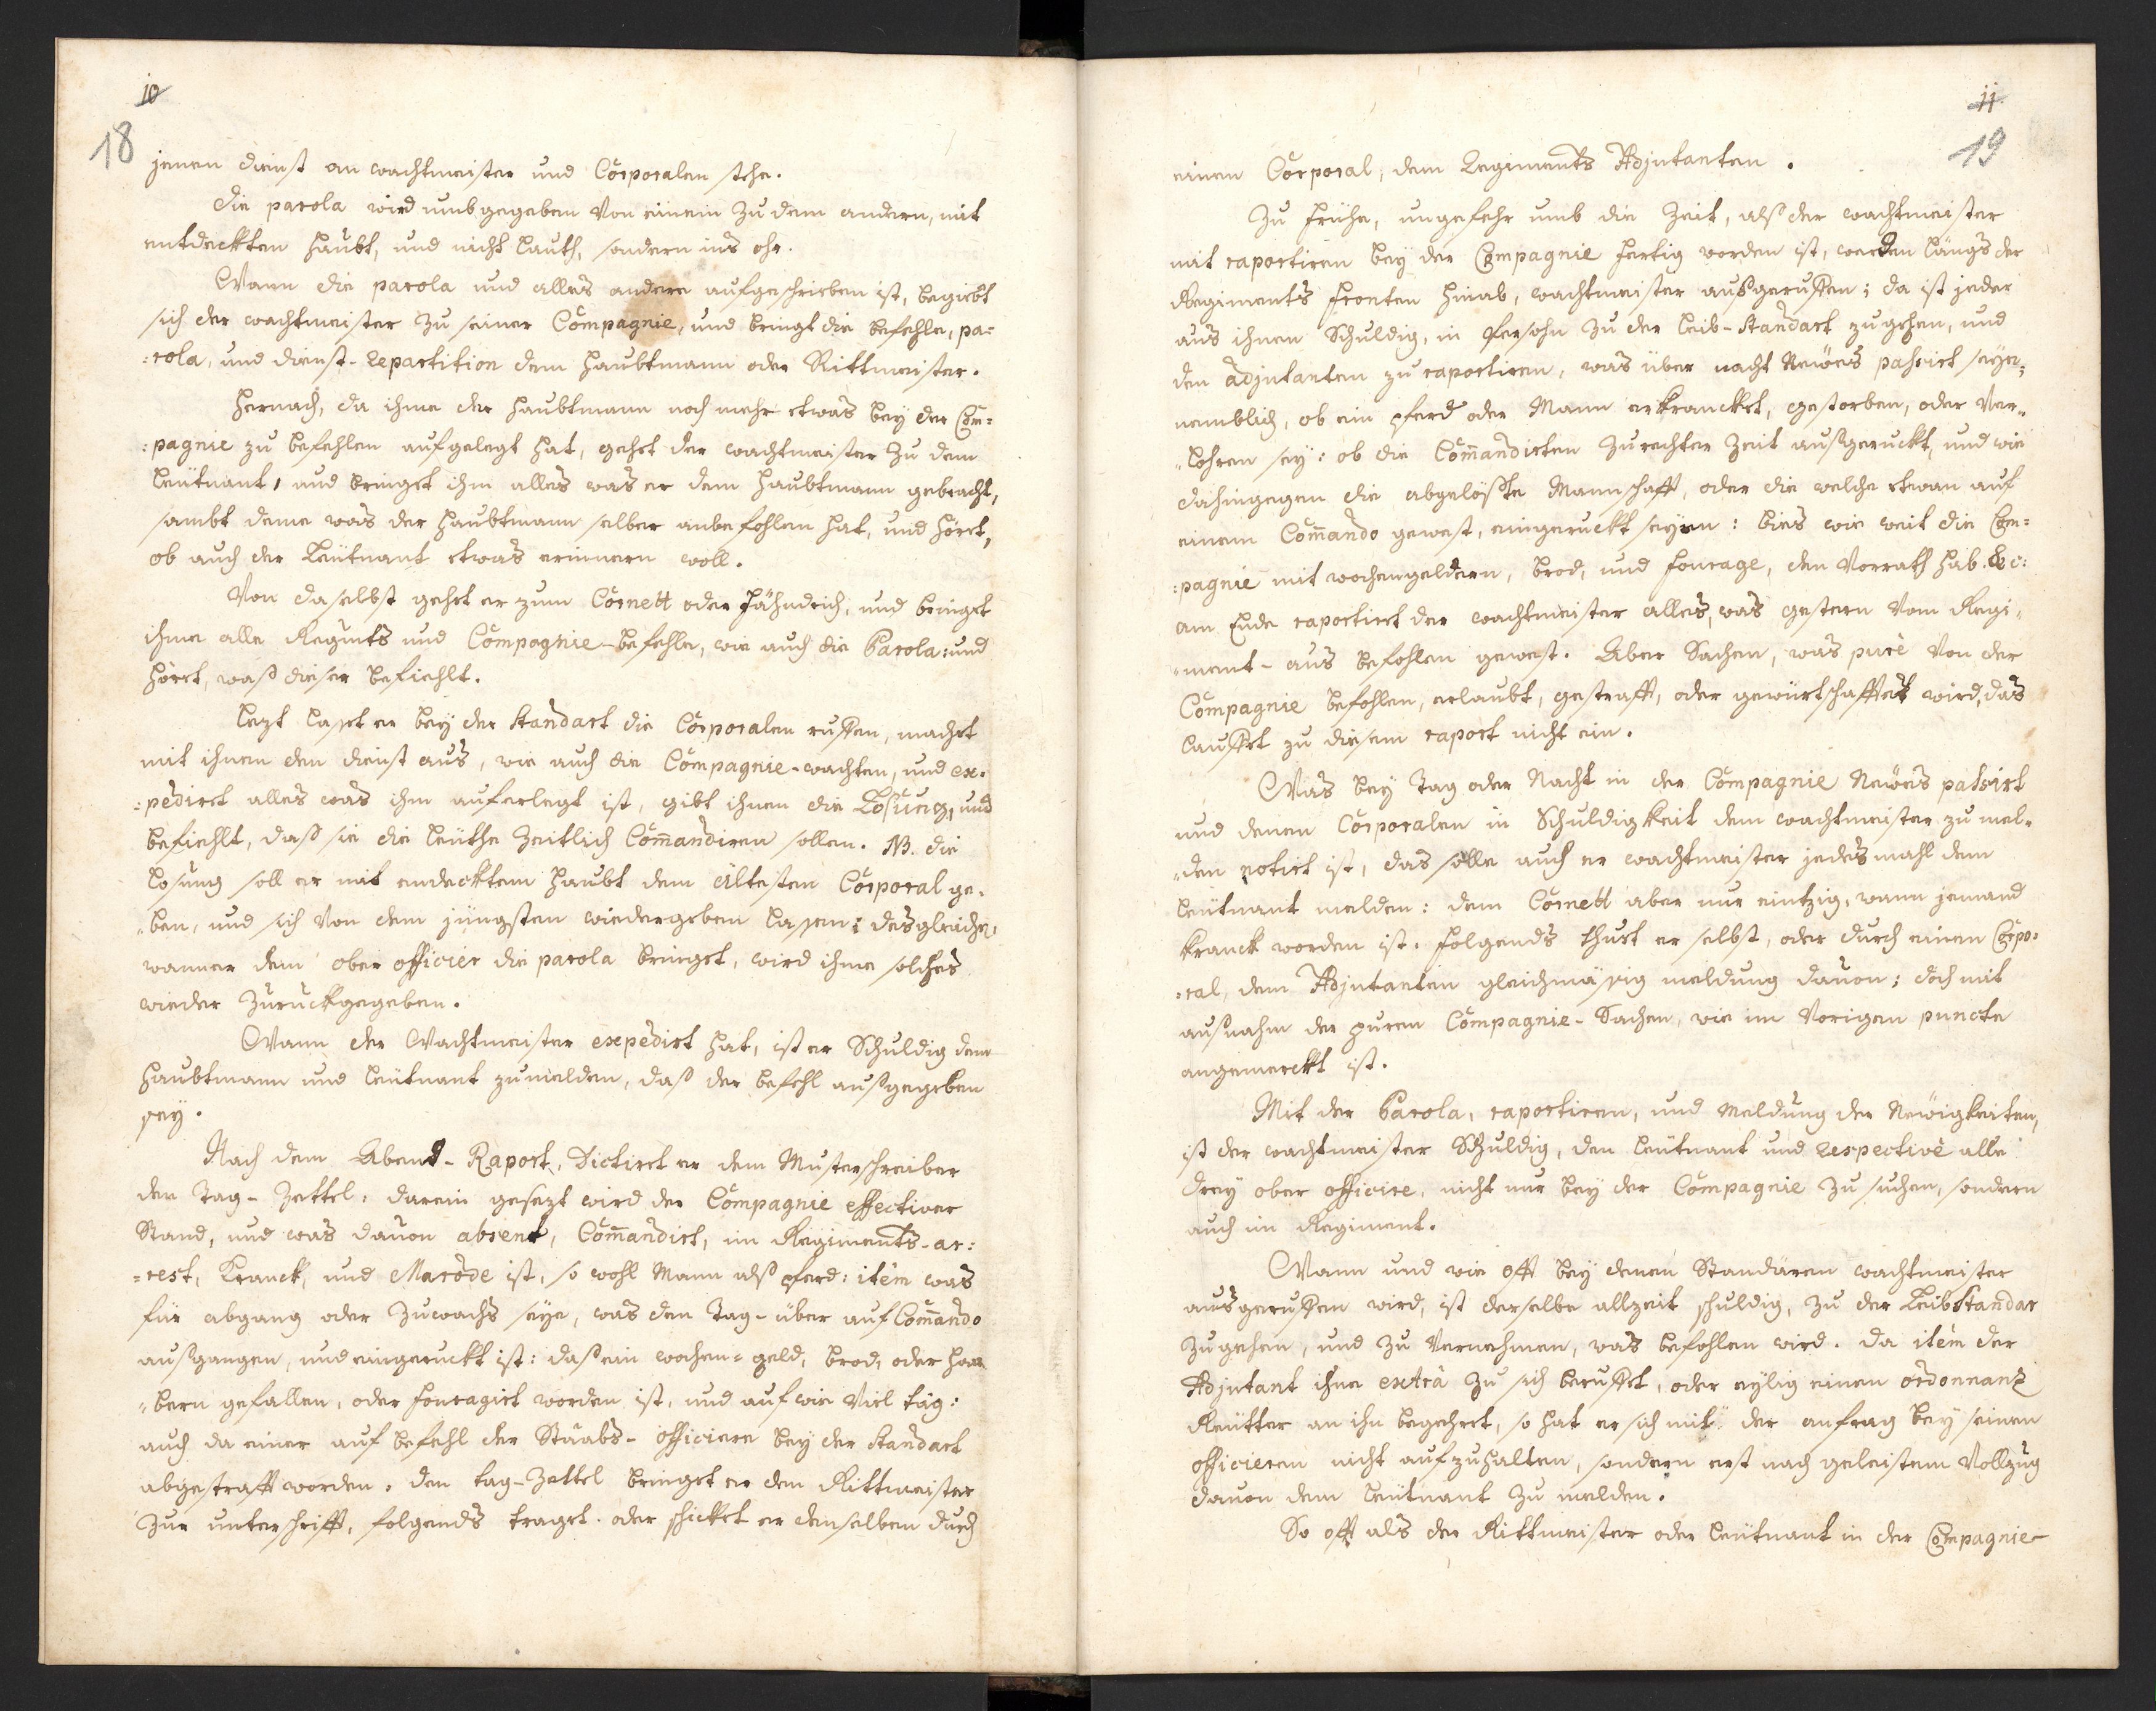 10
18
jenen dienst an wachtmeister und Corporalen stehe.
Die parola wird umbgegeben Von einem zu dem andern, mit
entdeckten Haubt, und nicht lauth, sondern ins ohr.
Wann die parola und alles andere aufgeschrieben ist, begiebt
sich der wachtmeister zu seiner Compagnie, und bringt die befehle, pa=
=rola, und dienst-repartition dem Haubtmann oder Rittmeister.
Hernach, da ihme der Haubtmann noch mehr etwas bey der Com=
:pagnie zu befehlen aufgelegt hat, gehet der wachtmeister zu dem
Leütnant, und bringet ihm alles was er dem Haubtmann gebracht,
sambt deme was der Haubtmann selber anbefohlen hat, und höret,
ob auch der Leütnant etwas erinnern woll.
Von daselbst gehet er zum Cornett oder Fähndrich, und bringet
ihme alle Regmts und Compagnie-befehle, wie auch die Parola: und
höret, waß dieser befiehlt.
lezt lasset er bey der Standart die Corporalen ruffen, machet
mit ihnen den dienst aus, wie auch die Compagnie-wachten, und ex=
:pediret alles was ihm auferlegt ist, gibt ihnen die Losung, und
befiehlt, daß sie die leuthe Zeitlich Com̄andiren sollen. NB. die
losung soll er mit endecktem Haubt dem ältesten Corporal ge=
"ben, und sich Von dem jüngsten wiedergeben lassen: desgleichen,
wanner dem ober officier die parola bringet, wird ihme solches
wieder zuruckgegeben.
Wann der Wachtmeister expedirt hat, ist er Schuldig dem
Haubtmann und leütnant zu melden, daß der befehl außgegeben
sey.
Nach dem Abend-Raport, Dictiret er dem Musterschreiber
den Tag-Zettel: darein gesezt wird der Compagnie effectiver
Stand, und was davon absent, Com̄andirt, im Regiments-ar=
=rest, Kranck, und Marode ist, so wohl Mann alß pferd: item was
für abgang oder zuwachs seye, was den Tag-über auf Com̄ando
außgangen, und eingeruckt ist: daß ein wochen=geld, brod, oder Haa
"bern gefallen, oder fouragirt worden ist, und auf wie Viel täg:
auch da einer auf befehl der Staabs-officiere bey der Standart
abgestrafft worden. den tag-Zettel bringet er dem Rittmeister
zur unterschrifft, folgends traget oder schicket er denselben durch
11.
19
einen Corporal, dem Regiments Adjutanten.
Zu frühe, ungefehr umb die Zeit, alß der wachtmeister
mit raportiren bey der Compagnie fertig worden ist, werden längs der
Regiments fronten hinab, wachtmeister außgeruffen; da ist jeder
aus ihnen Schuldig, in Persohn zu der leib-Standart zugehen, und
den adjutanten zu raportiren, was über nacht Neües passirt seye;
nemblich, ob ein pferd oder Mann erkrancket, gestorben, oder Ver"
"lohren sey: ob die Com̄andirten zu rechter Zeit außgeruckt, und wie
dahingegen die abgelößte Mannschafft, oder die welche etwan auf
einem Com̄ando gewest, eingeruckt seyen: biß wie weit die Com=
:pagnie mit wochengeldern, brod, und fourage, den Vorrath hab. &c:
am Ende raportiret der wachtmeister alles, was gestern Vom Regi"
"ment-aus befohlen gewest. Aber Sachen, was purè Von der
Compagnie befohlen, erlaubt, gestrafft, oder gewürtschafftet wird, das
lauffet zu diesem raport nicht ein.
Was bey Tag oder Nacht in der Compagnie Neües passirt
und denen Corporalen in Schuldigkeit dem wachtmeister zu mel"
"den notirt ist, das solle auch er wachtmeister jedes mahl dem
leütnant melden: dem Cornett aber nur eintzig, wann jemand
kranck worden ist. folgends thuet er selbst, oder durch einen Corpo=
=ral, dem Adjutanten gleichmäsig meldung davon; doch mit
außnahm der puren Compagnie-Sachen, wie im Vorigen puncte
angemerckt ist.
Mit der Parola, raportiren, und meldung der Neüigkeiten,
ist der wachtmeister Schuldig, den leütnant und respectivè alle
drey ober officire, nicht nur bey der Compagnie zu suchen, sondern
auch im Regiment.
Wann und wie offt bey denen Standaren wachtmeister
ausgeruffen wird, ist derselbe allzeit schuldig, zu der LeibStandar
zugehen, und zu Vernehmen, was befohlen wird. da item der
Adjutant ihne extrà zu sich beruffet, oder eylig einen ordonnanz
Reütter an ihn begehret, so hat er sich mit der anfrag bey seinen
officieren nicht aufzuhalten, sondern erst nach geleistem Vollzug
davon dem leütnant zu melden.
So offt als der Rittmeister oder leütnant in der Compagnie